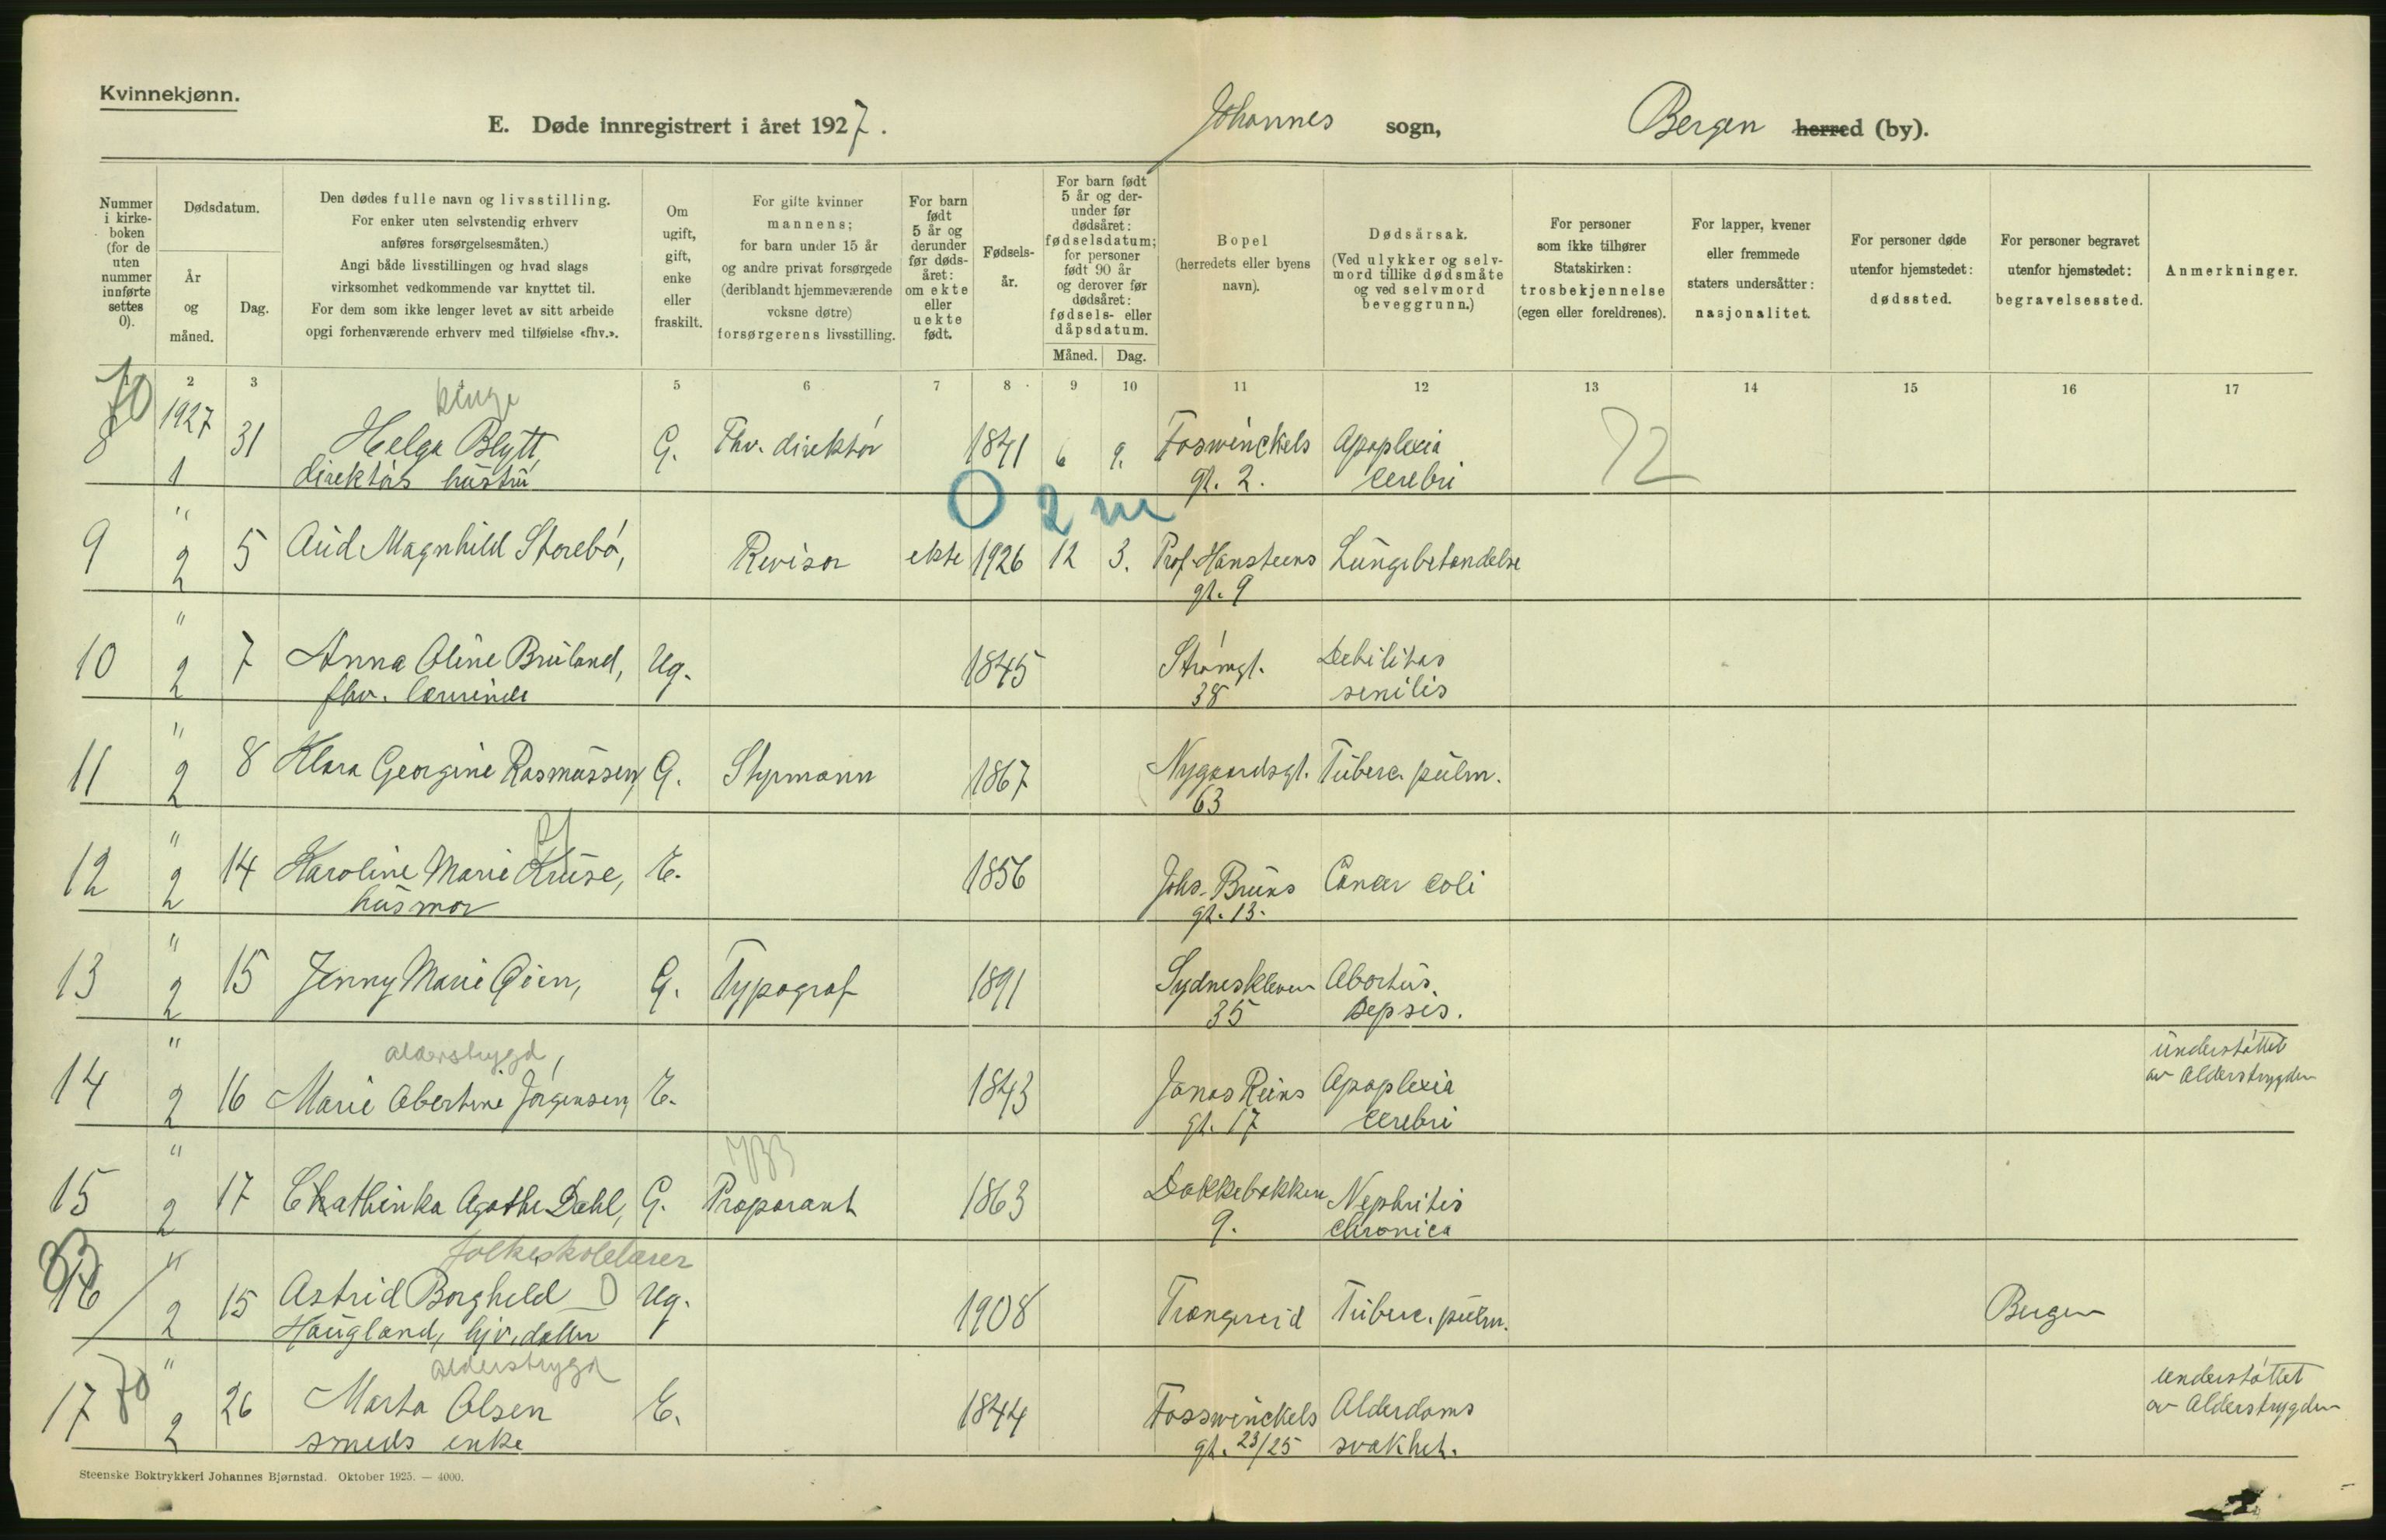 Kvinnekjønn.
E. Døde innregistrert i året 1927. Johannes sogn, Bergen herred (by).
Nummer i kirke-boken (for de uten nummer innførte settes 0).
Dødsdatum.
År og måned.
Dag.
Den dødes fulle navn og livsstilling.
For enker uten selvstendig erhverv
anføres forsørgelsesmåten.)
Angi både livsstillingen og hvad slags
virksomhet vedkommende var knyttet til.
For dem som ikke lenger levet av sitt arbeide
opgi forhenværende erhverv med tilføielse «fhv.».
Om ugift, gift, enke eller fraskilt.
For gifte kvinner
mannens;
for barn under 15 år
og andre privat forsørgede
(deriblandt hjemmeværende
voksne døtre)
forsørgerens livsstilling.
For barn født 5 år og derunder før døds-året: om ekte eller uekte født.
Fødsels-år.
For barn født 5 år og der-under før dødsåret: fødselsdatum; for personer født 90 år og derover før dødsåret: fødsels- eller dåpsdatum.
Måned. Dag.
Bopel
(herredets eller byens
navn).
Dødsårsak.
(Ved ulykker og selv-
mord tillike dødsmåte
og ved selvmord
beveggrunn.)
For personer
som ikke tilhører
Statskirken:
trosbekjennelse
(egen eller foreldrenes).
For lapper, kvener
eller fremmede
staters undersåtter:
nasjonalitet.
For personer døde
utenfor hjemstedet:
dødssted.
For personer begravet
utenfor hjemstedet:
begravelsessted.
Anmerkninger.
1 2 3 5 6 7 8 9 10 11 12 13 14 15 16 17
70
8 1927 1 31 Helga Blytt, G. Fhv. direktör 1841 6 9. Foswinckels Apoplexia 72
direktörs hustru gt. 2. cerebri
O 2 m
9 " 2 5 Aud Magnhild Storebö, Revisor ekte 1926 12 3. Prof. Hansteens Lungebetendelse
gt. 9
10 " 2 7 Anna Oline Bruland, Ug. 1845 Strömgt. Debilitas
fhv. lærerinde 38 senilis
11 " 2 8 Klara Georgine Rasmussen, G. Styrmann 1867 Nygaardsgt. Tuberc. pulm.
63
12 " 2 14 Karoline Marie Kruse, E. 1856 Johs. Bruns Cancer coli
husmor gt. 13.
13 " 2 15 Jenny Marie Øien, G. Typograf 1891 Sydneskleven Abortus.
35 Sepsis.
alderstrygd
14 " 2 16 Marie Abertine Jörgensen, E. 1843 Jonas Reins Apoplexia understöttet
gt. 17 cerebri av Alderstrygden
15 " 2 17 Chathinka Agathe Dahl, G. Proparant 1863 Dokkebakken Nephritis
9. chronica
folkeskolelærer
16 " 2 15 Astrid Borghild Ug. 1908 Trengereid Tuberc. pulm. Bergen
Haugland, hjv. datter
alderstrygd
17 70 " 2 26 Marta Olsen E. 1844 Fosswinckels Alderdoms understöttet
smeds enke gt. 23/25 svakhet. av Alderstrygden
Steenske Boktrykkeri Johannes Bjørnstad. Oktober 1925. — 4000.